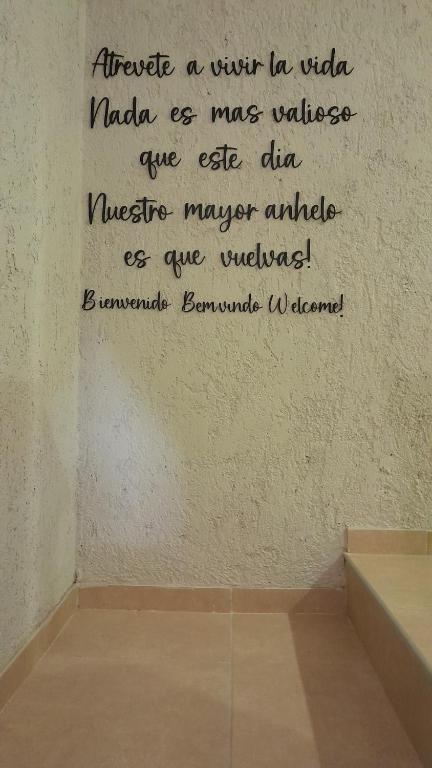 Atrevete a vivir la vida
Nada es mas valioso
que este dia
Nuestro mayor anhelo
es que vuelvas!
Bienvenido Bemvindo Welcome!